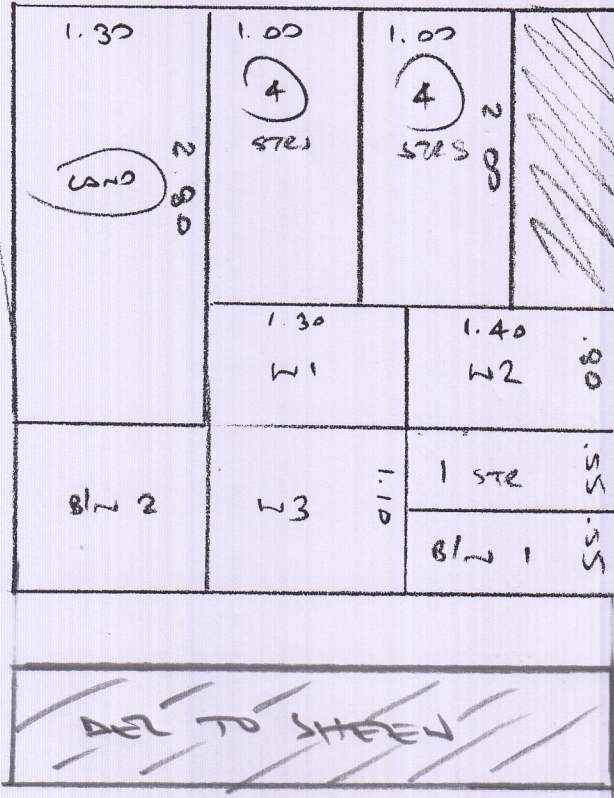 1.30
LAND
2 80
1.00
4
STRS
1.00
4
STRS
2 00
1.30
W1
1.40
W2
.80
B/W 2
W3
1.10
1 STR
.55
B/W 1
.55
DEL TO SHEREW